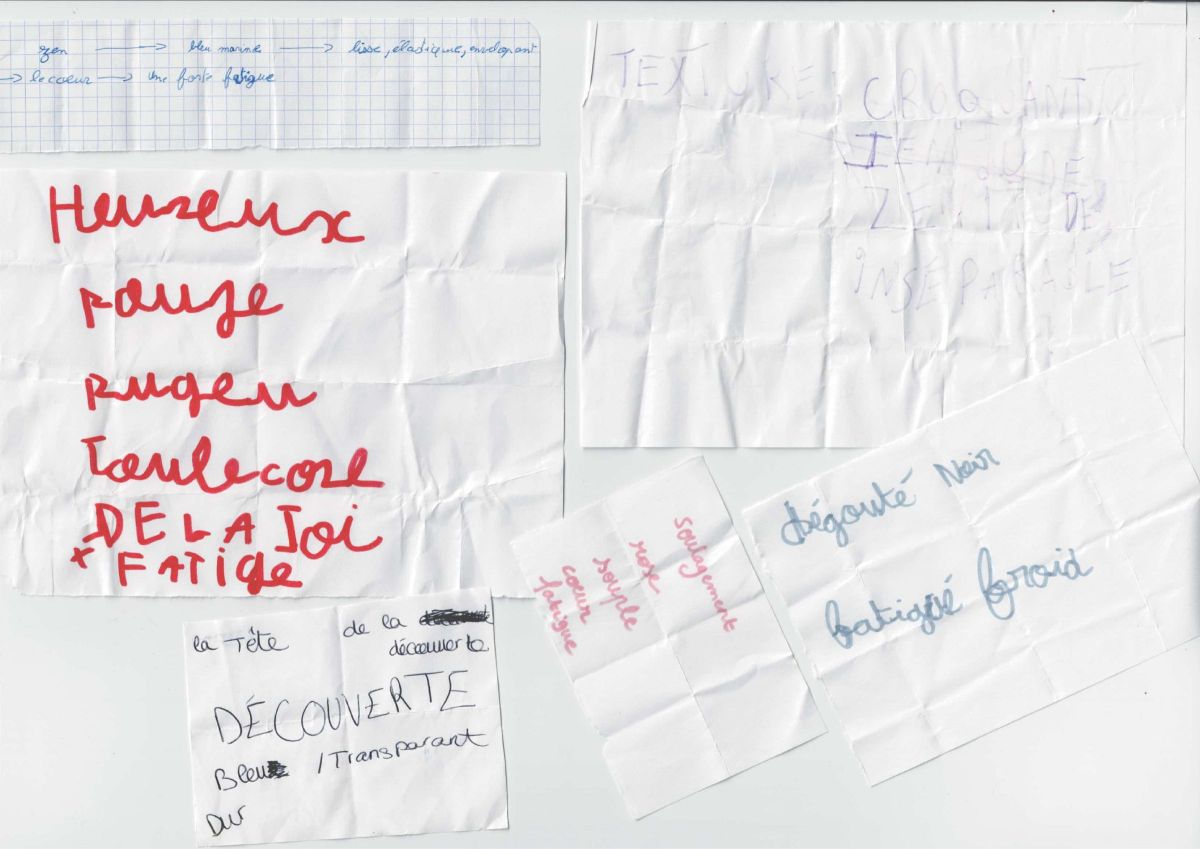 zen → bleu marine → lisse, élastique, enveloppant
→ le coeur → Une forte fatigue
Heureux
rouge
rugeu
Toulecore
DE LA Joi
+ FATIGE
TEXTURE : CROQUANT
ZENITUDE,
INSÉPARABLE
dégouté Noir
fatigué froid
soulagement
rose
souple
coeur
fatigue
la Tête de la
découverte
DÉCOUVERTE
Bleu /Transparant
Dur